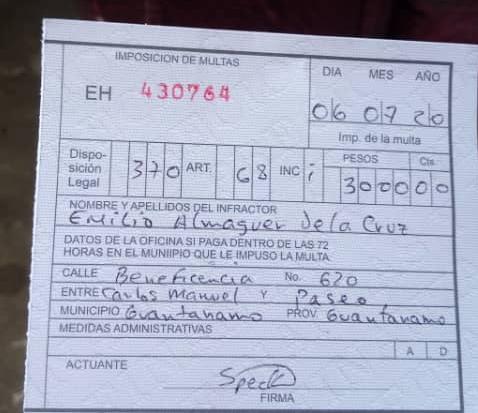 IMPOSICION DE MULTAS
DIA MES AÑO
EH 430764
06 07 20
Imp. de la multa
Dispo-
sición
Legal
370 ART. 68 INC i
PESOS Cts.
3000 00
NOMBRE Y APELLIDOS DEL INFRACTOR
Emilio Almaguer De la Cruz
DATOS DE LA OFICINA SI PAGA DENTRO DE LAS 72
HORAS EN EL MUNIIPIO QUE LE IMPUSO LA MULTA
CALLE Beneficencia No. 620
ENTRE Carlos Manuel Y Paseo
MUNICIPIO Guantanamo PROV. Guantanamo
MEDIDAS ADMINISTRATIVAS
A D
ACTUANTE
FIRMA